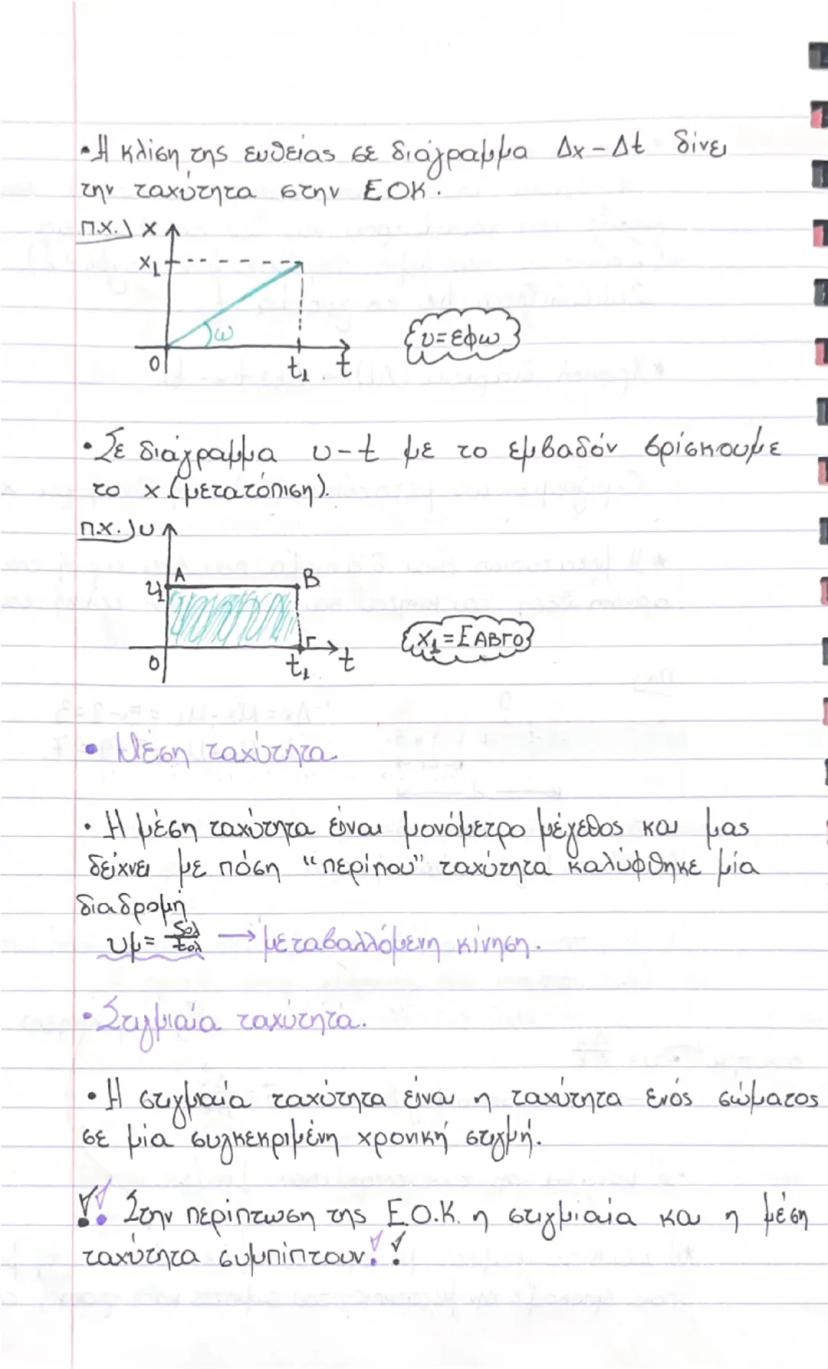 • Η κλίση της ευθείας σε διάγραμμα Δx - Δt δίνει
την ταχύτητα στην ΕΟΚ.
π.χ.) x
x₁
ω
0 t₁ t
υ=εφω
• Σε διάγραμμα υ-t με το εμβαδόν βρίσκουμε
το x (μετατόπιση).
π.χ.) υ
υ₁ Α Β
0 t₁ Γ t
x₁ = ΕΑΒΓΟ
• Μέση ταχύτητα
• Η μέση ταχύτητα είναι μονόμετρο μέγεθος και μας
δείχνει με πόση "περίπου" ταχύτητα καλύφθηκε μία
διαδρομή
υμ = Sολ/tολ → μεταβαλλόμενη κίνηση.
• Στιγμιαία ταχύτητα.
• Η στιγμιαία ταχύτητα είναι η ταχύτητα ενός σώματος
σε μία συγκεκριμένη χρονική στιγμή.
!! Στην περίπτωση της Ε.Ο.Κ. η στιγμιαία και η μέση
ταχύτητα συμπίπτουν!!